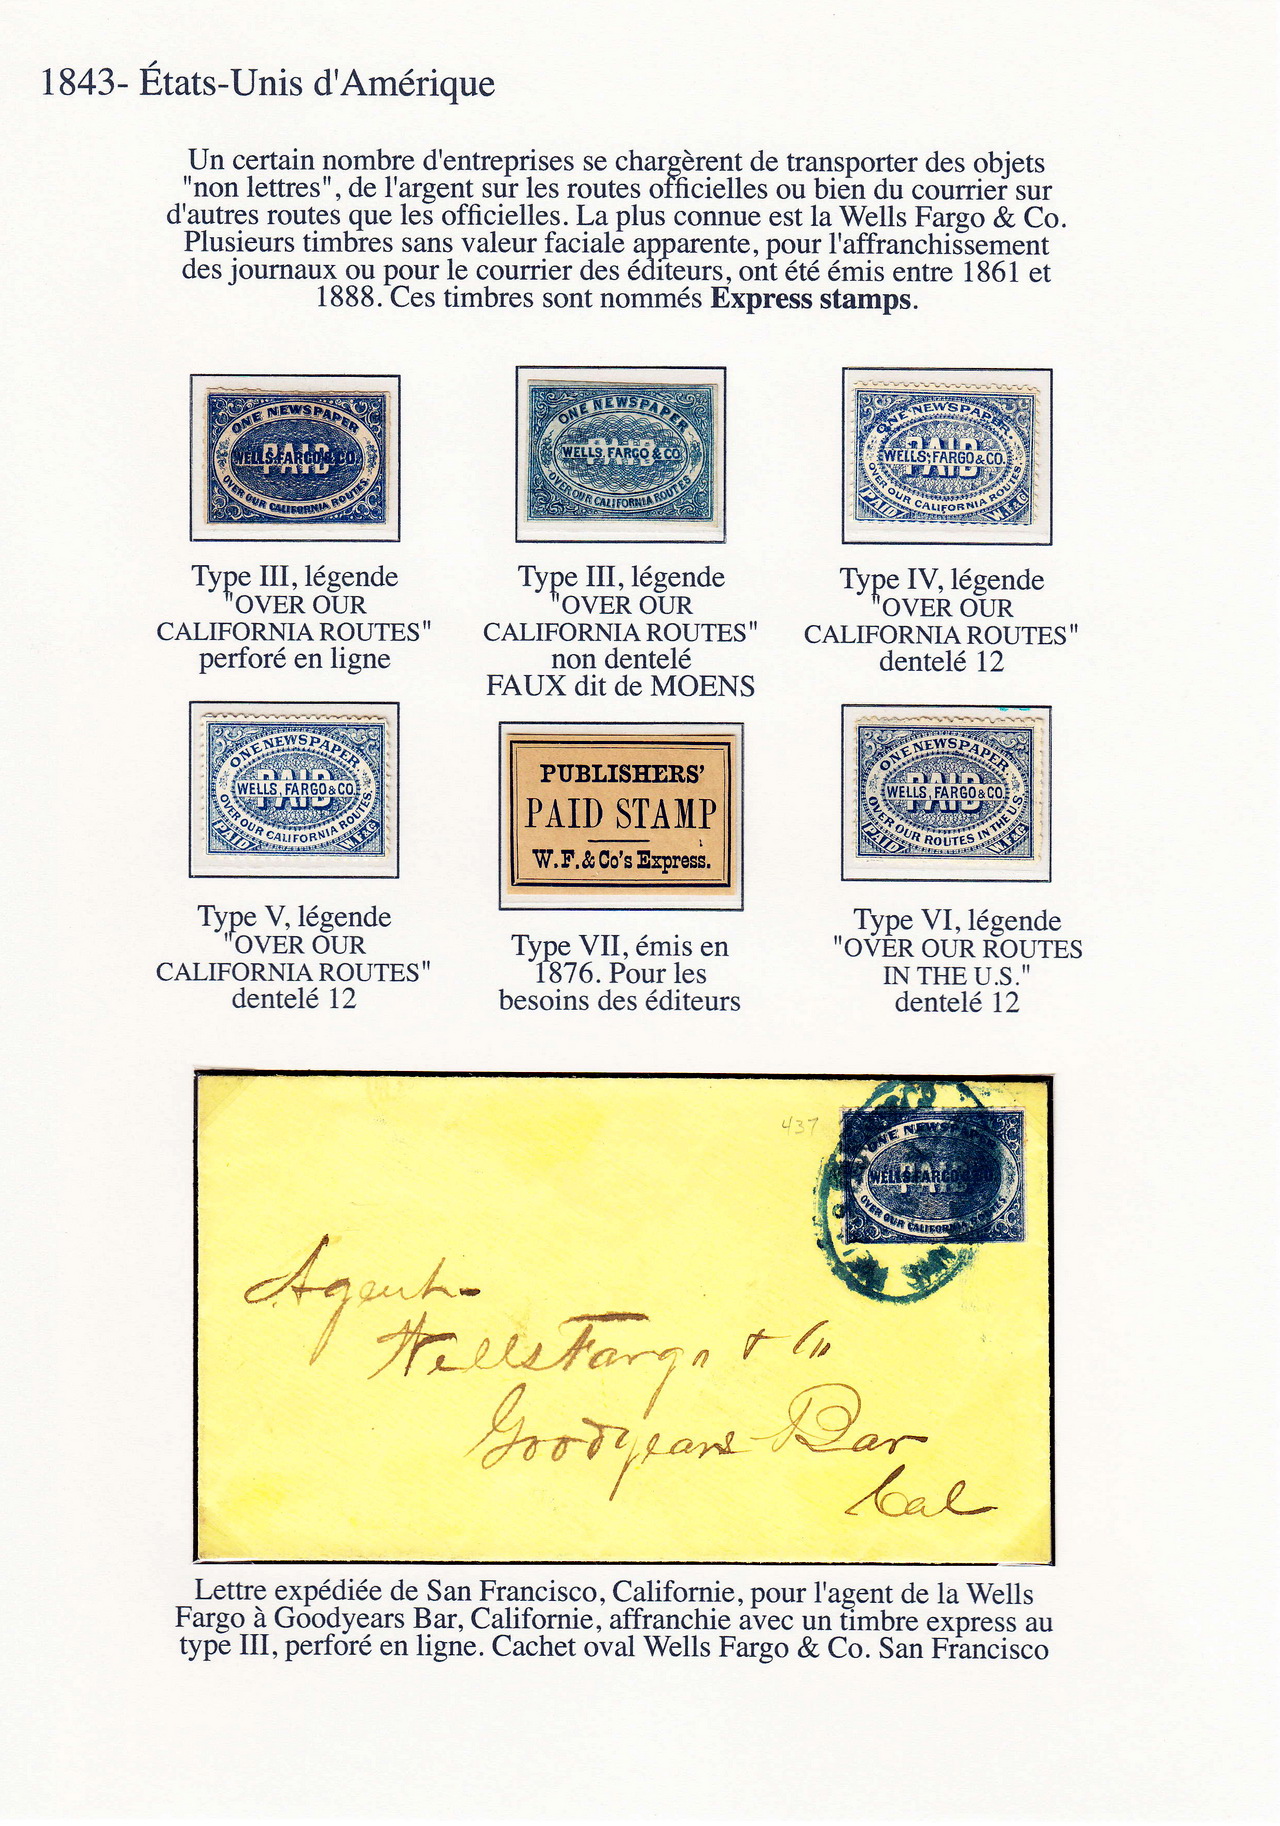 1843- États-Unis d'Amérique
Un certain nombre d'entreprises se chargèrent de transporter des objets
"non lettres", de l'argent sur les routes officielles ou bien du courrier sur
d'autres routes que les officielles. La plus connue est la Wells Fargo & Co.
Plusieurs timbres sans valeur faciale apparente, pour l'affranchissement
des journaux ou pour le courrier des éditeurs, ont été émis entre 1861 et
1888. Ces timbres sont nommés Express stamps.
ONE NEWSPAPER
PAID
WELLS, FARGO & CO.
OVER OUR CALIFORNIA ROUTES.
Type III, légende
"OVER OUR
CALIFORNIA ROUTES"
perforé en ligne
ONE NEWSPAPER
PAID
WELLS, FARGO & CO
OVER OUR CALIFORNIA ROUTES
Type III, légende
"OVER OUR
CALIFORNIA ROUTES"
non dentelé
FAUX dit de MOENS
ONE NEWSPAPER.
PAID
WELLS, FARGO & CO.
OVER OUR CALIFORNIA ROUTES.
PAID W.F.&C
Type IV, légende
"OVER OUR
CALIFORNIA ROUTES"
dentelé 12
ONE NEWSPAPER.
PAID
WELLS, FARGO & CO.
OVER OUR CALIFORNIA ROUTES.
PAID W.F.&C
Type V, légende
"OVER OUR
CALIFORNIA ROUTES"
dentelé 12
PUBLISHERS'
PAID STAMP
W. F. & Co's Express.
Type VII, émis en
1876. Pour les
besoins des éditeurs
ONE NEWSPAPER.
PAID
WELLS, FARGO & CO.
OVER OUR ROUTES IN THE U.S.
PAID W.F.&C
Type VI, légende
"OVER OUR ROUTES
IN THE U.S."
dentelé 12
437
ONE NEWSPAPER
PAID
WELLS, FARGO & CO.
OVER OUR CALIFORNIA ROUTES.
Agent
Wells Fargo & Co
Goodyears Bar
Cal
Lettre expédiée de San Francisco, Californie, pour l'agent de la Wells
Fargo à Goodyears Bar, Californie, affranchie avec un timbre express au
type III, perforé en ligne. Cachet oval Wells Fargo & Co. San Francisco